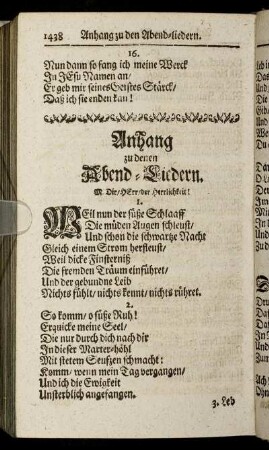 1438 Anhang zu den Abend-liedern.
16.
Nun dann so fang ich meine Werck
In JEsu Namen an/
Er geb mir seines Geistes Stärck/
Daß ich sie enden kan!
Anhang
zu denen
Abend-Liedern.
M. Dir/ HErr/ der Herrlichkeit!
1.
WEil nun der süße Schlaaff
Die müden Augen schleust/
Und schon die schwartze Nacht
Gleich einem Strom herfleust/
Weil dicke Finsterniß
Die fremden Träum einführet/
Und der gebundne Leib
Nichts fühlt/ nichts kennt/ nichts rühret.
2.
So komm/ o süße Ruh!
Erquicke meine Seel/
Die nur durch dich nach dir
In dieser Marter-höhl
Mit stetem Seufzen schmacht:
Komm/ wenn mein Tag vergangen/
Und ich die Ewigkeit
Unsterblich angefangen.
3. Leb